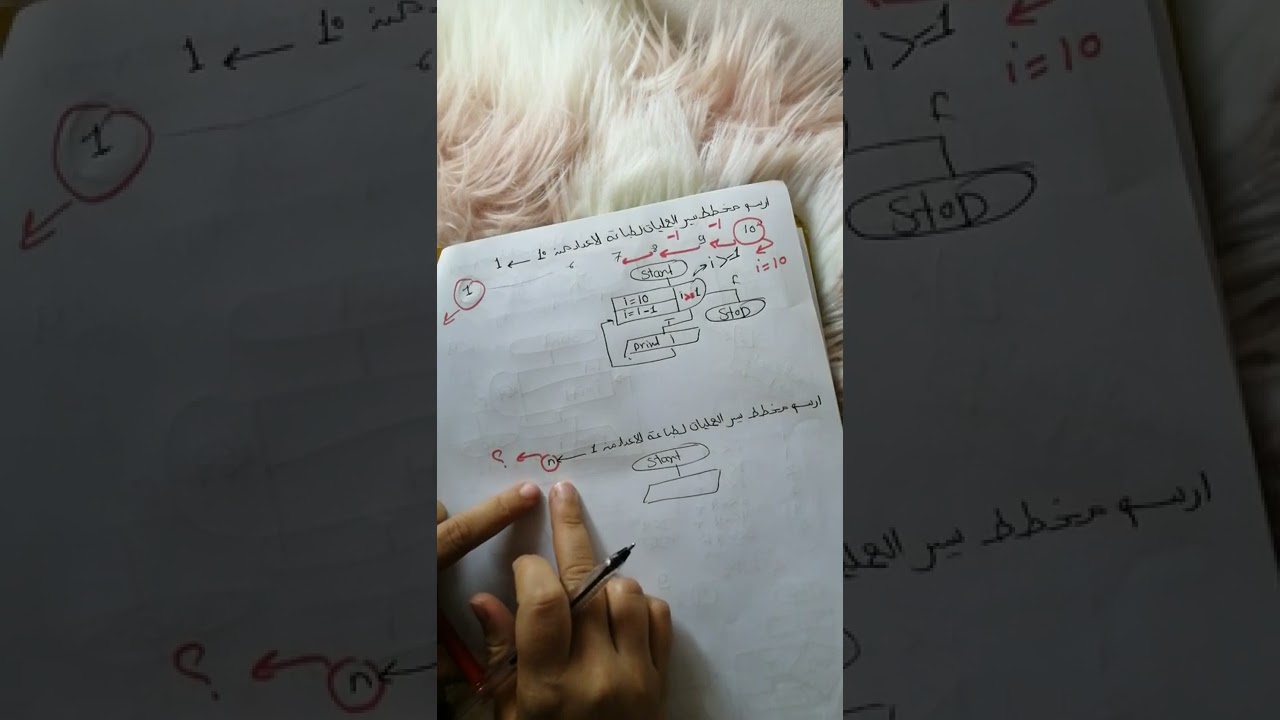 ارسم مخطط سير العمليات لطباعة الاعداد من 10 ← 1
10 -1 9 -1 8 7 ، 1
i=10
Start
i>=1
i=10
i=i-1
i>=1
F
Stop
T
print i
ارسم مخطط سير العمليات لطباعة الاعداد من 1 ← n ← ؟
Start